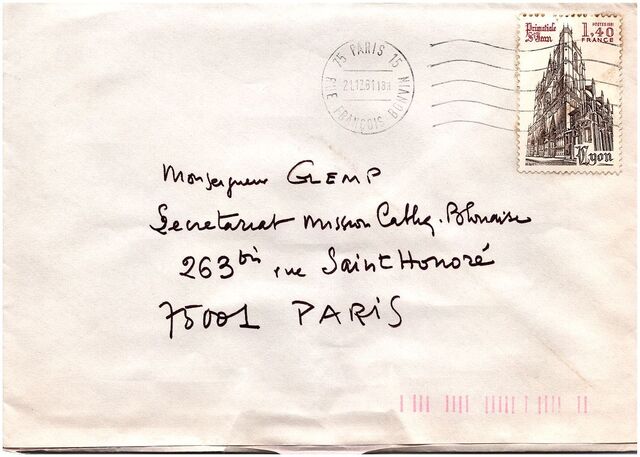 75 PARIS 15
21.12.81 18H
RUE FRANÇOIS BONVIN
Primatiale
St Jean
POSTES 1981
1,40
FRANCE
Lyon
Monseigneur GLEMP
Secretariat Mission Cathq. Polonaise
263 bis rue Saint Honoré
75001 PARIS